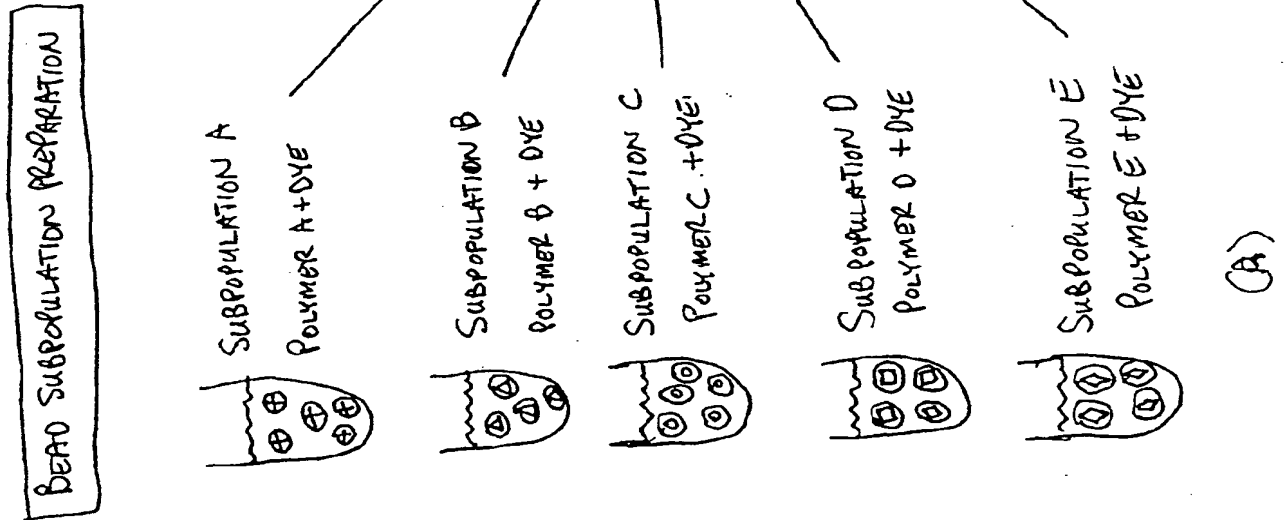 BEAD SUBPOPULATION PREPARATION
SUBPOPULATION A
POLYMER A + DYE
SUBPOPULATION B
POLYMER B + DYE
SUBPOPULATION C
POLYMER C. + DYE
SUBPOPULATION D
POLYMER D + DYE
SUBPOPULATION E
POLYMER E + DYE
(A)